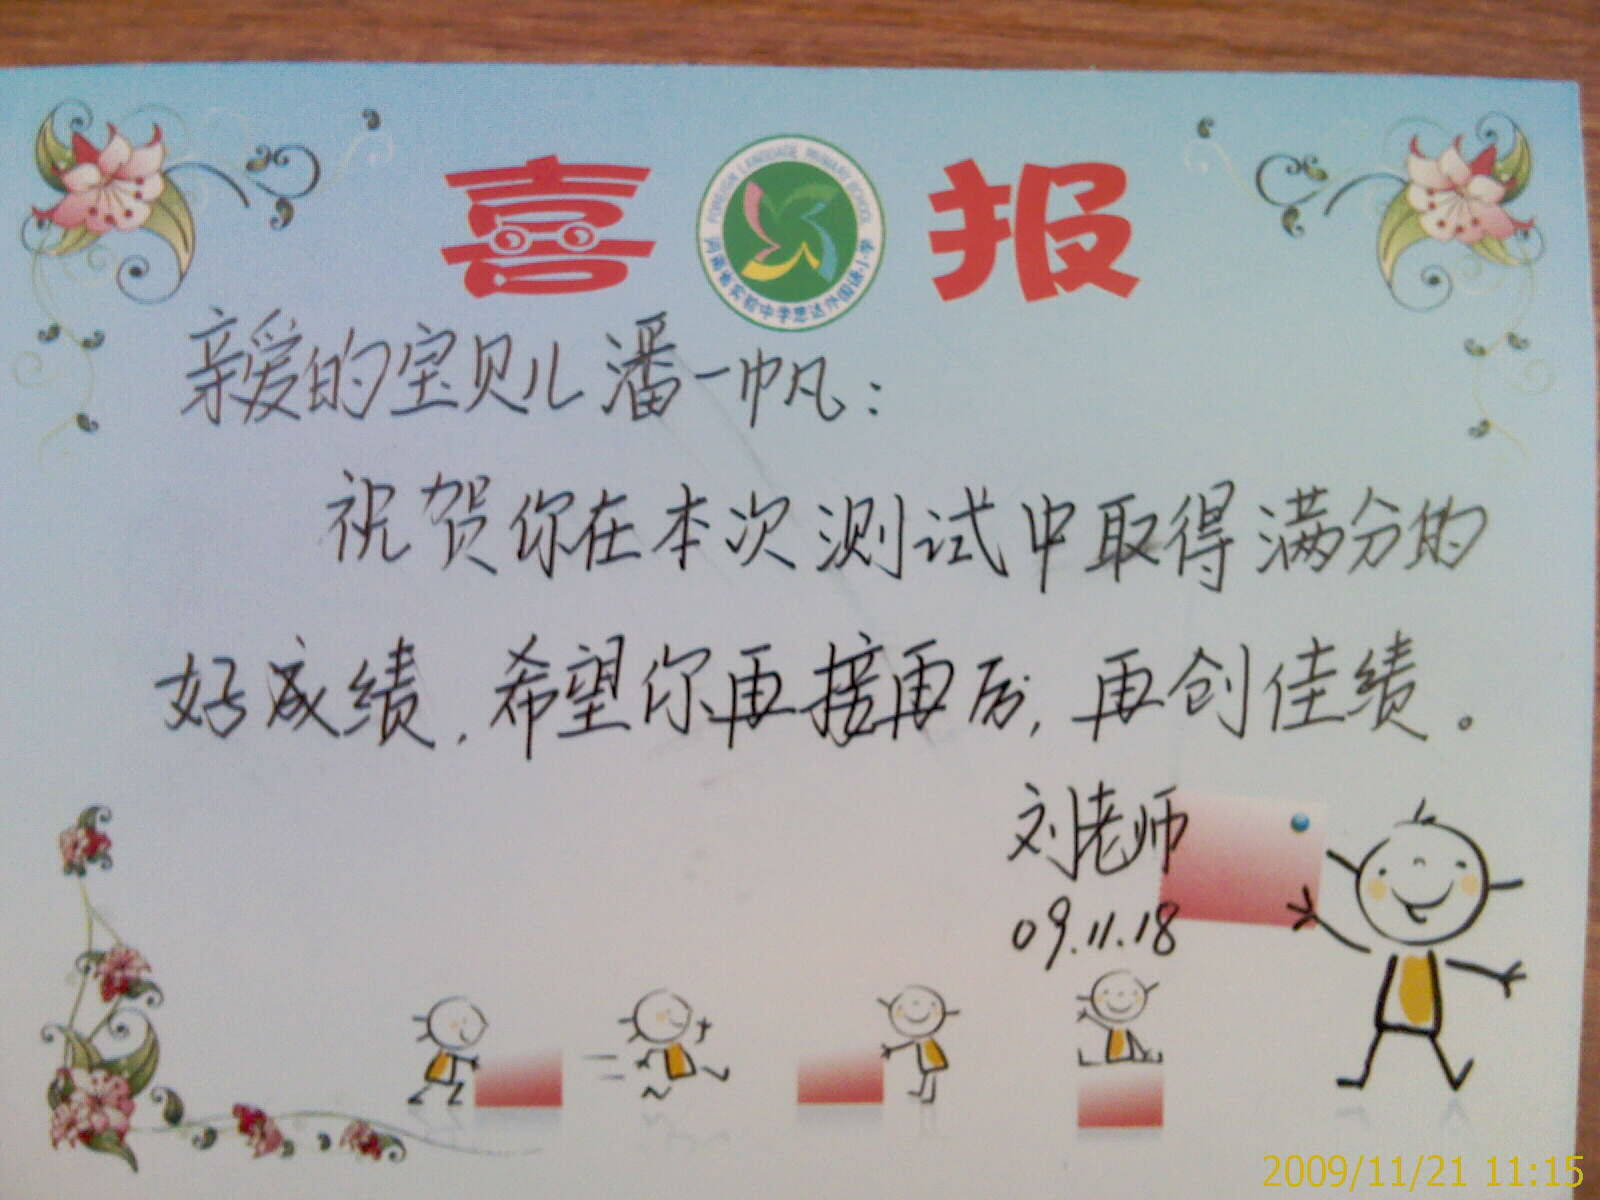 喜报
FOREIGN LANGUAGE PRIMARY SCHOOL
河南省实验中学思达外国语小学
亲爱的宝贝儿潘一帆：
祝贺你在本次测试中取得满分的
好成绩，希望你再接再厉，再创佳绩。
刘老师
09.11.18
2009/11/21 11:15